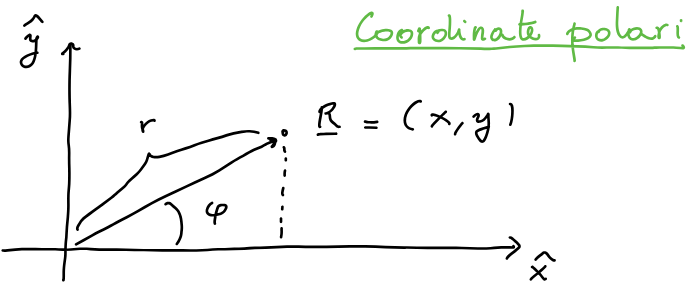 Coordinate polari
ŷ
r
R = (x, y)
φ
x̂